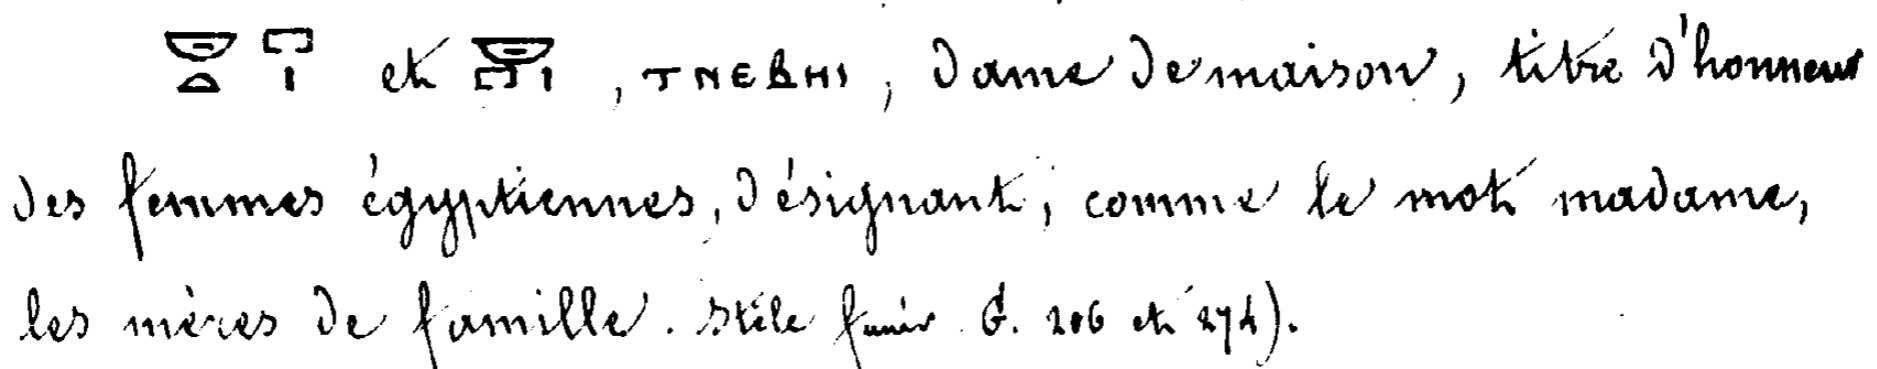 𓎟𓏏 𓉐𓏤 et 𓎟𓉐𓏤, ⲦⲚⲈⲂⲎⲒ, Dame de maison, titre d'honneur
des femmes égyptiennes, désignant, comme le mot madame,
les mères de famille. Stèle funér. G. 206 et 274).